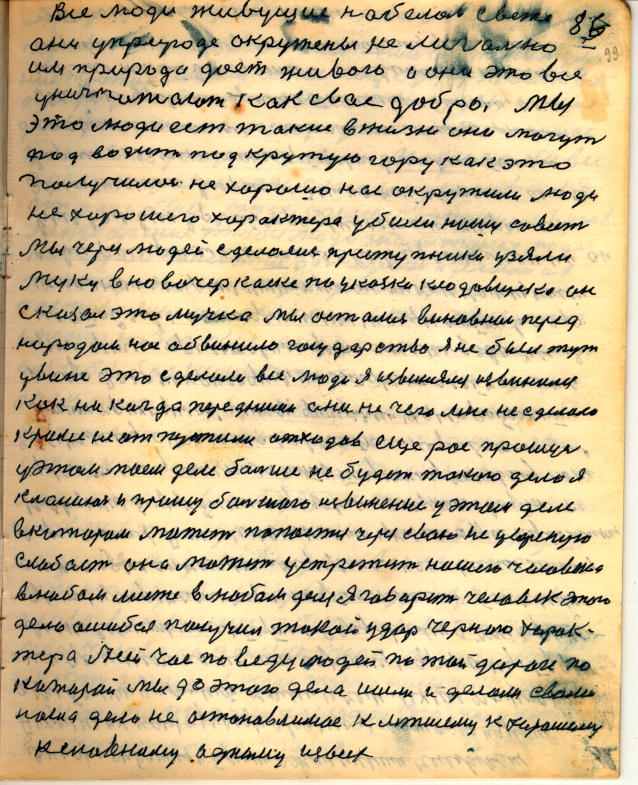 Все люди живущие на белом свете
они у природе окружены не легально
им природа дает живого а они это все
уничтожают как свое добро, Мы
это люди ест такие в жизни они могут
под водить под крутую гору как это
получилос не хорошо нас окружили люди
не хорошего характера убили нашу совест
Мы через людей сделалис приступники узяли
муку в новочеркаске по указки кладовщика он
сказал это мучка Мы осталис виновном перед
народом нас обвинило государство я не был тут
у вине это сделали все люди Я извинялся извинилса
как ни когда перед ними они не чего мне не сделали
кроми отпустили отходов еще рас прошуся
у этом моем деле болше не будет такого дела Я
кланяюс и прошу болшого извинение у этом деле
в котором может попасти через свою не
слабост она может устретит нашего человека
в любом месте в любом деле Я говарит человек этого
дела ошибся получил такой удар черного харак-
тера Сей час поведу людей по той дороги по
которой мы до этого дела шли и делали свою
дело не остонавлимое к лутшему к хорошему
к главному одному извек
8
99